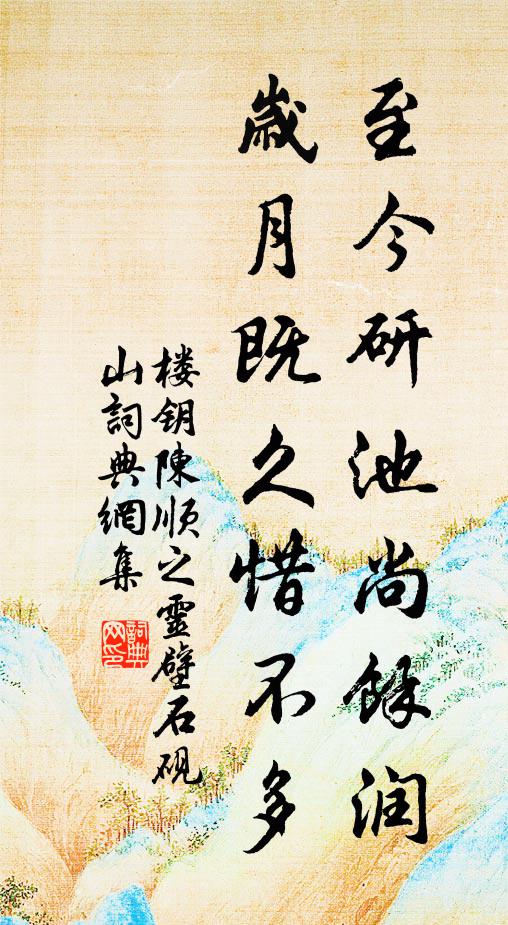 至今研池尚餘润
歲月既久惜不多
楼钥陳順之靈壁石硯
山詞典網集
詞典网印